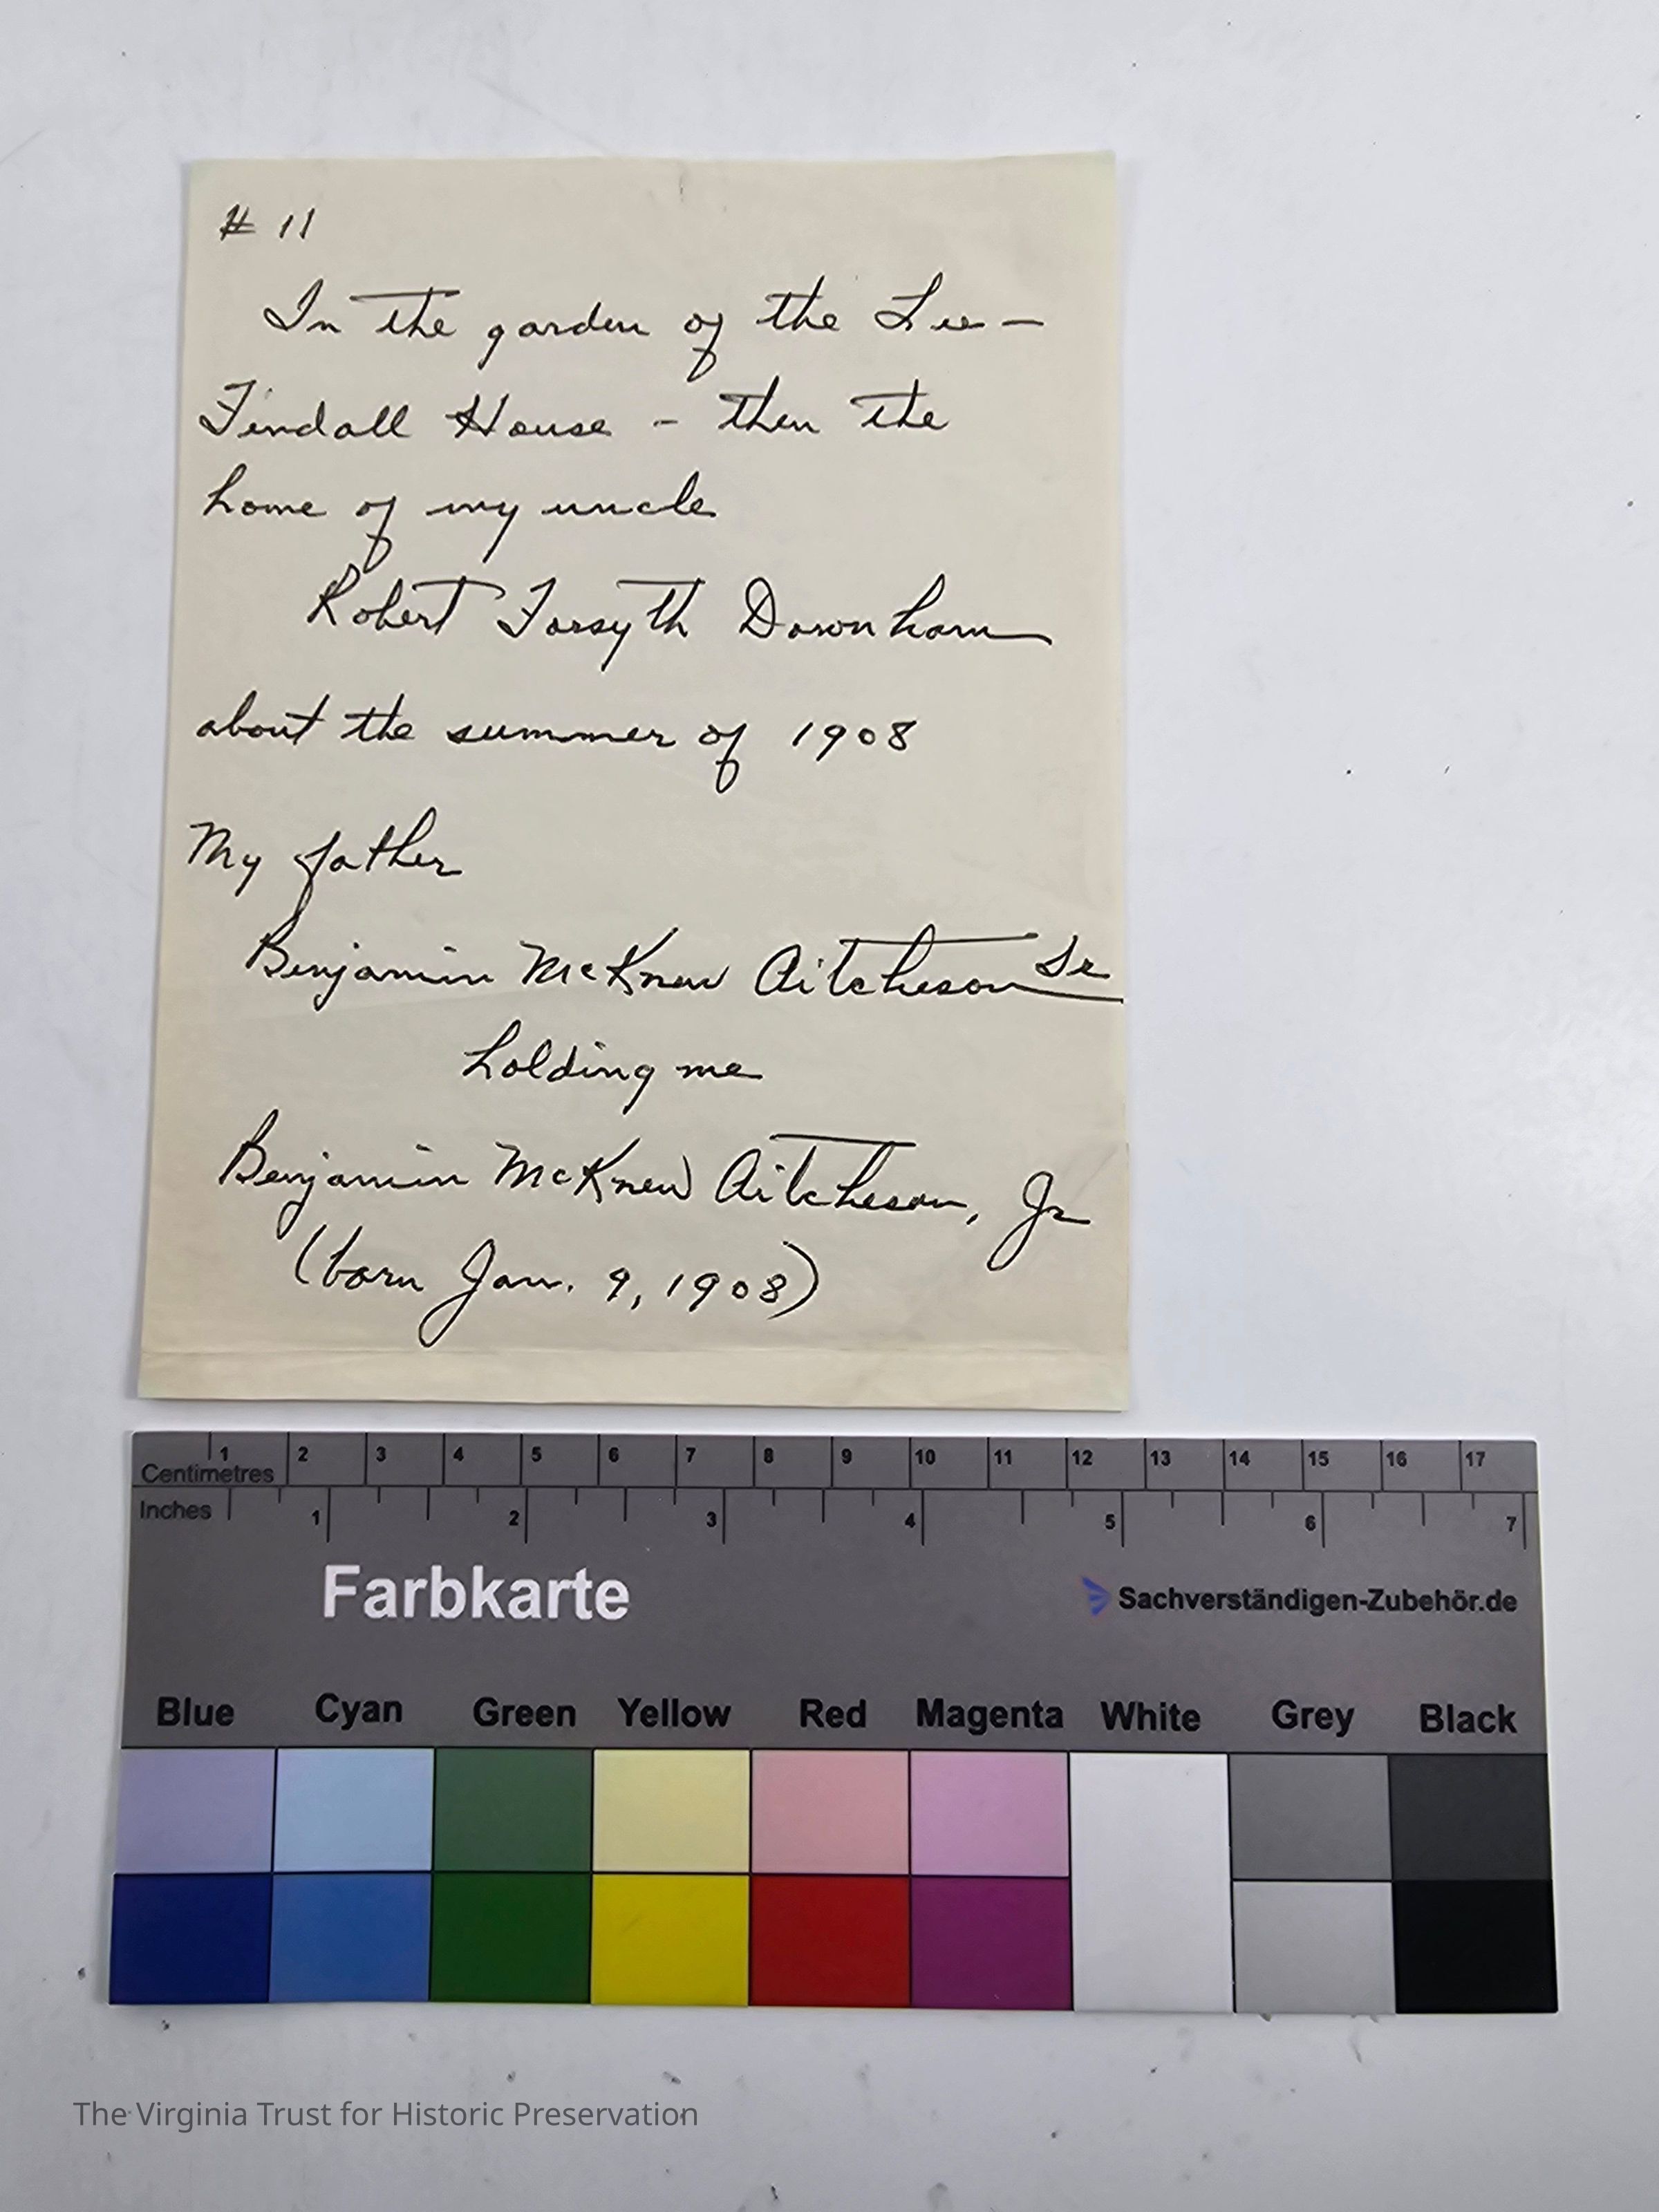 # 11
In the garden of the Lee-
Findall House - then the
home of my uncle
Robert Forsyth Downham
about the summer of 1908
My father
Benjamin McKnew Aitcheson Sr
holding me
Benjamin McKnew Aitcheson, Jr
(born Jan. 9, 1908)
1 2 3 4 5 6 7 8 9 10 11 12 13 14 15 16 17
Centimetres
Inches
1 2 3 4 5 6 7
Farbkarte
Sachverständigen-Zubehör.de
Blue Cyan Green Yellow Red Magenta White Grey Black
The Virginia Trust for Historic Preservation